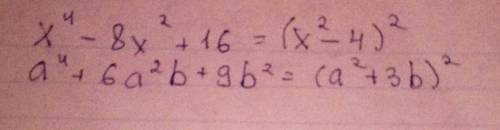 x⁴ - 8x² + 16 = (x² - 4)²
a⁴ + 6a²b + 9b² = (a² + 3b)²